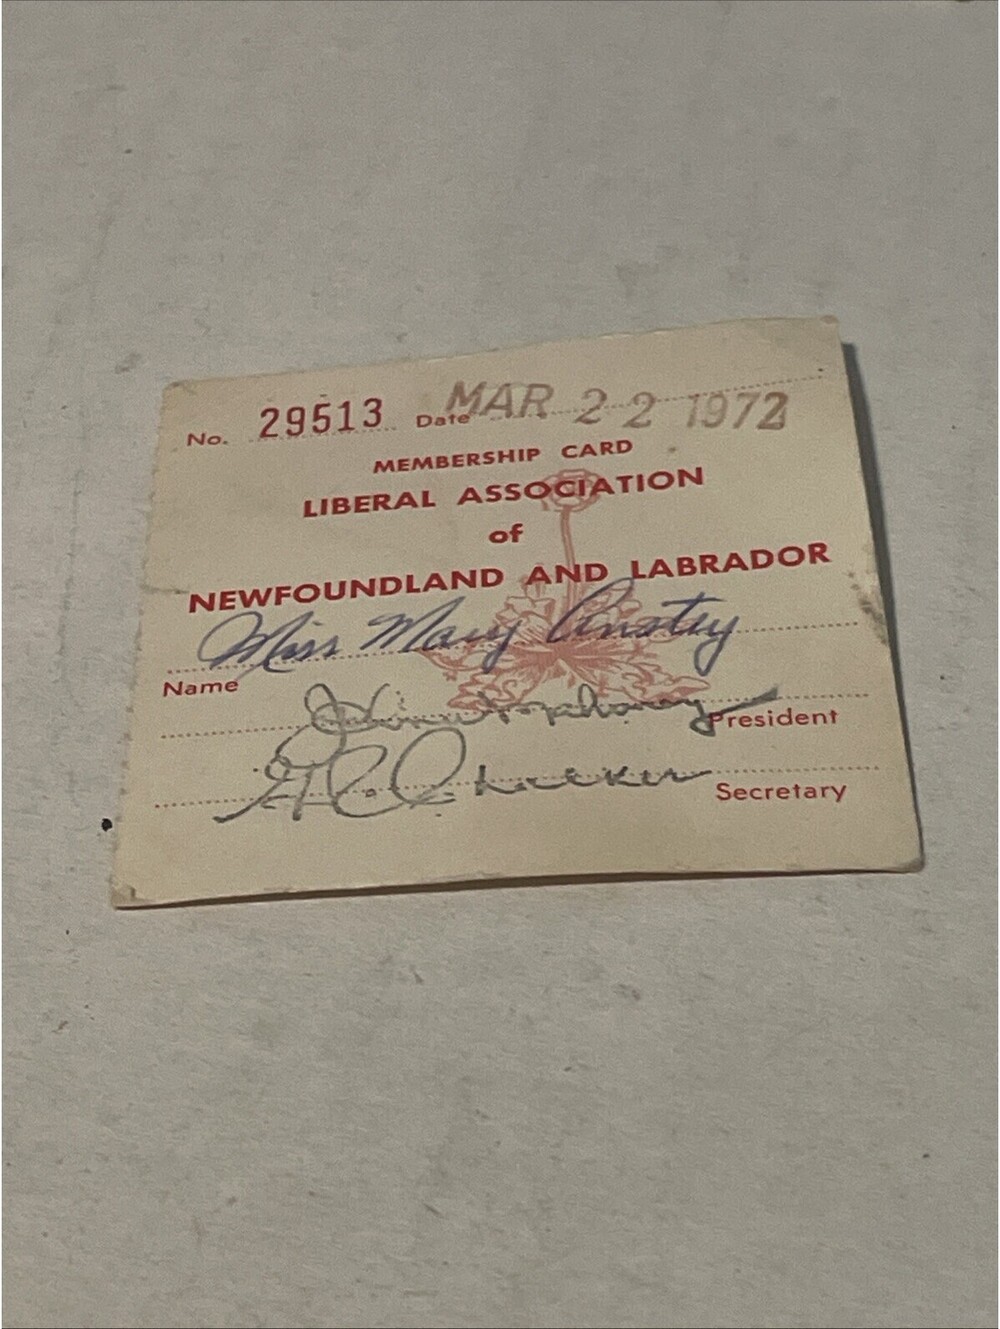 No. 29513 Date MAR 22 1972
MEMBERSHIP CARD
LIBERAL ASSOCIATION
of
NEWFOUNDLAND AND LABRADOR
Miss Mary Anstey
Name
Mahoney President
Secretary